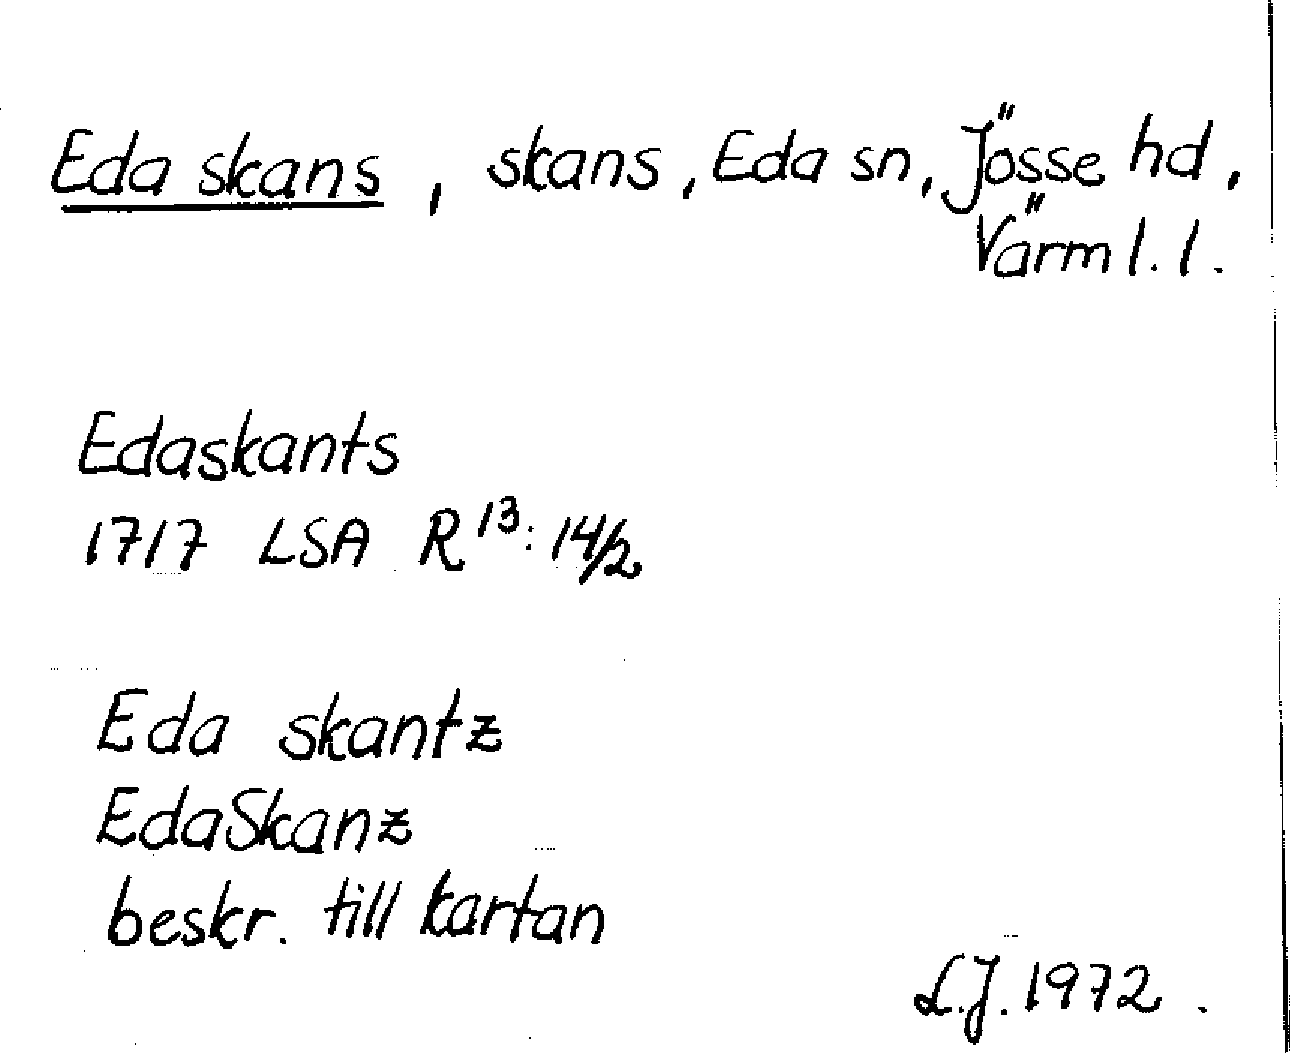 Eda skans, skans, Eda sn, Jösse hd,
Värml. l.
Edaskants
1717 LSA R¹³: 14/2
Eda skantz
EdaSkanz
beskr. till kartan
L.J. 1972.